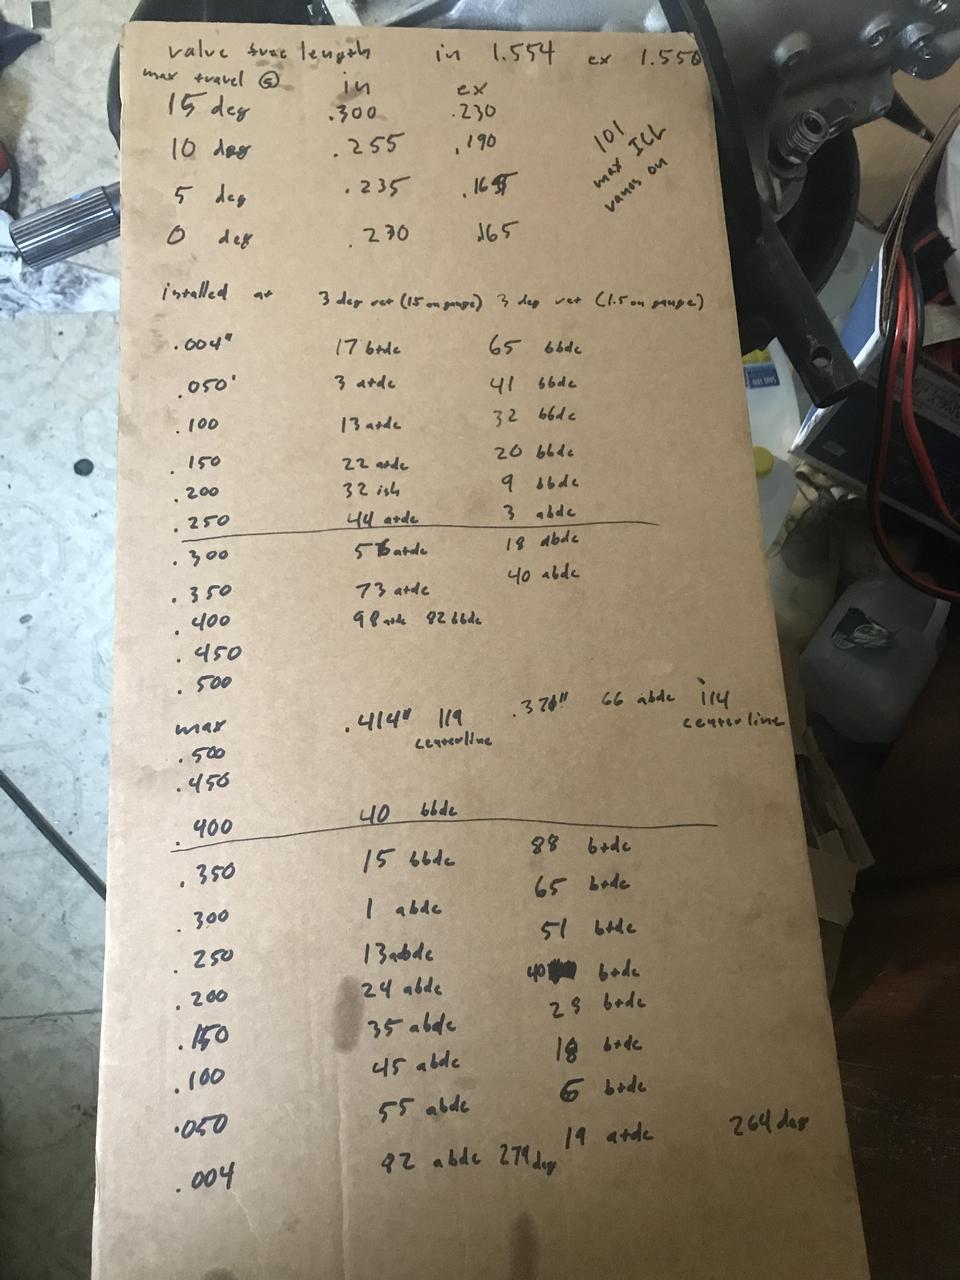 valve free length in 1.554 ex 1.550
max travel @ in ex
15 deg .300 .230
10 deg .255 .190
5 deg .235
0 deg .230 .165
101
max ICL
vanos on
installed at 3 deg ret (15 on gauge) 3 deg ret (1.5 on gauge)
.004" 17 btdc 65 bbdc
.050' 3 atdc 41 bbdc
.100 13 atdc 32 bbdc
.150 22 atdc 20 bbdc
.200 32 ish 9 bbdc
.250 44 atdc 3 abdc
.300 atdc 18 abdc
.350 73 atdc 40 abdc
.400 98 atdc 82 bbdc
.450
.500
max .414" 119 centerline 66 abdc 114 centerline
.500
.450
.400 40 bbdc
.350 15 bbdc 88 btdc
.300 1 abdc 65 btdc
.250 13 abdc 51 btdc
.200 24 abdc 40 btdc
.150 35 abdc btdc
.100 45 abdc 18 btdc
.050 55 abdc 6 btdc
.004 82 abdc 279 deg 19 atdc 264 deg